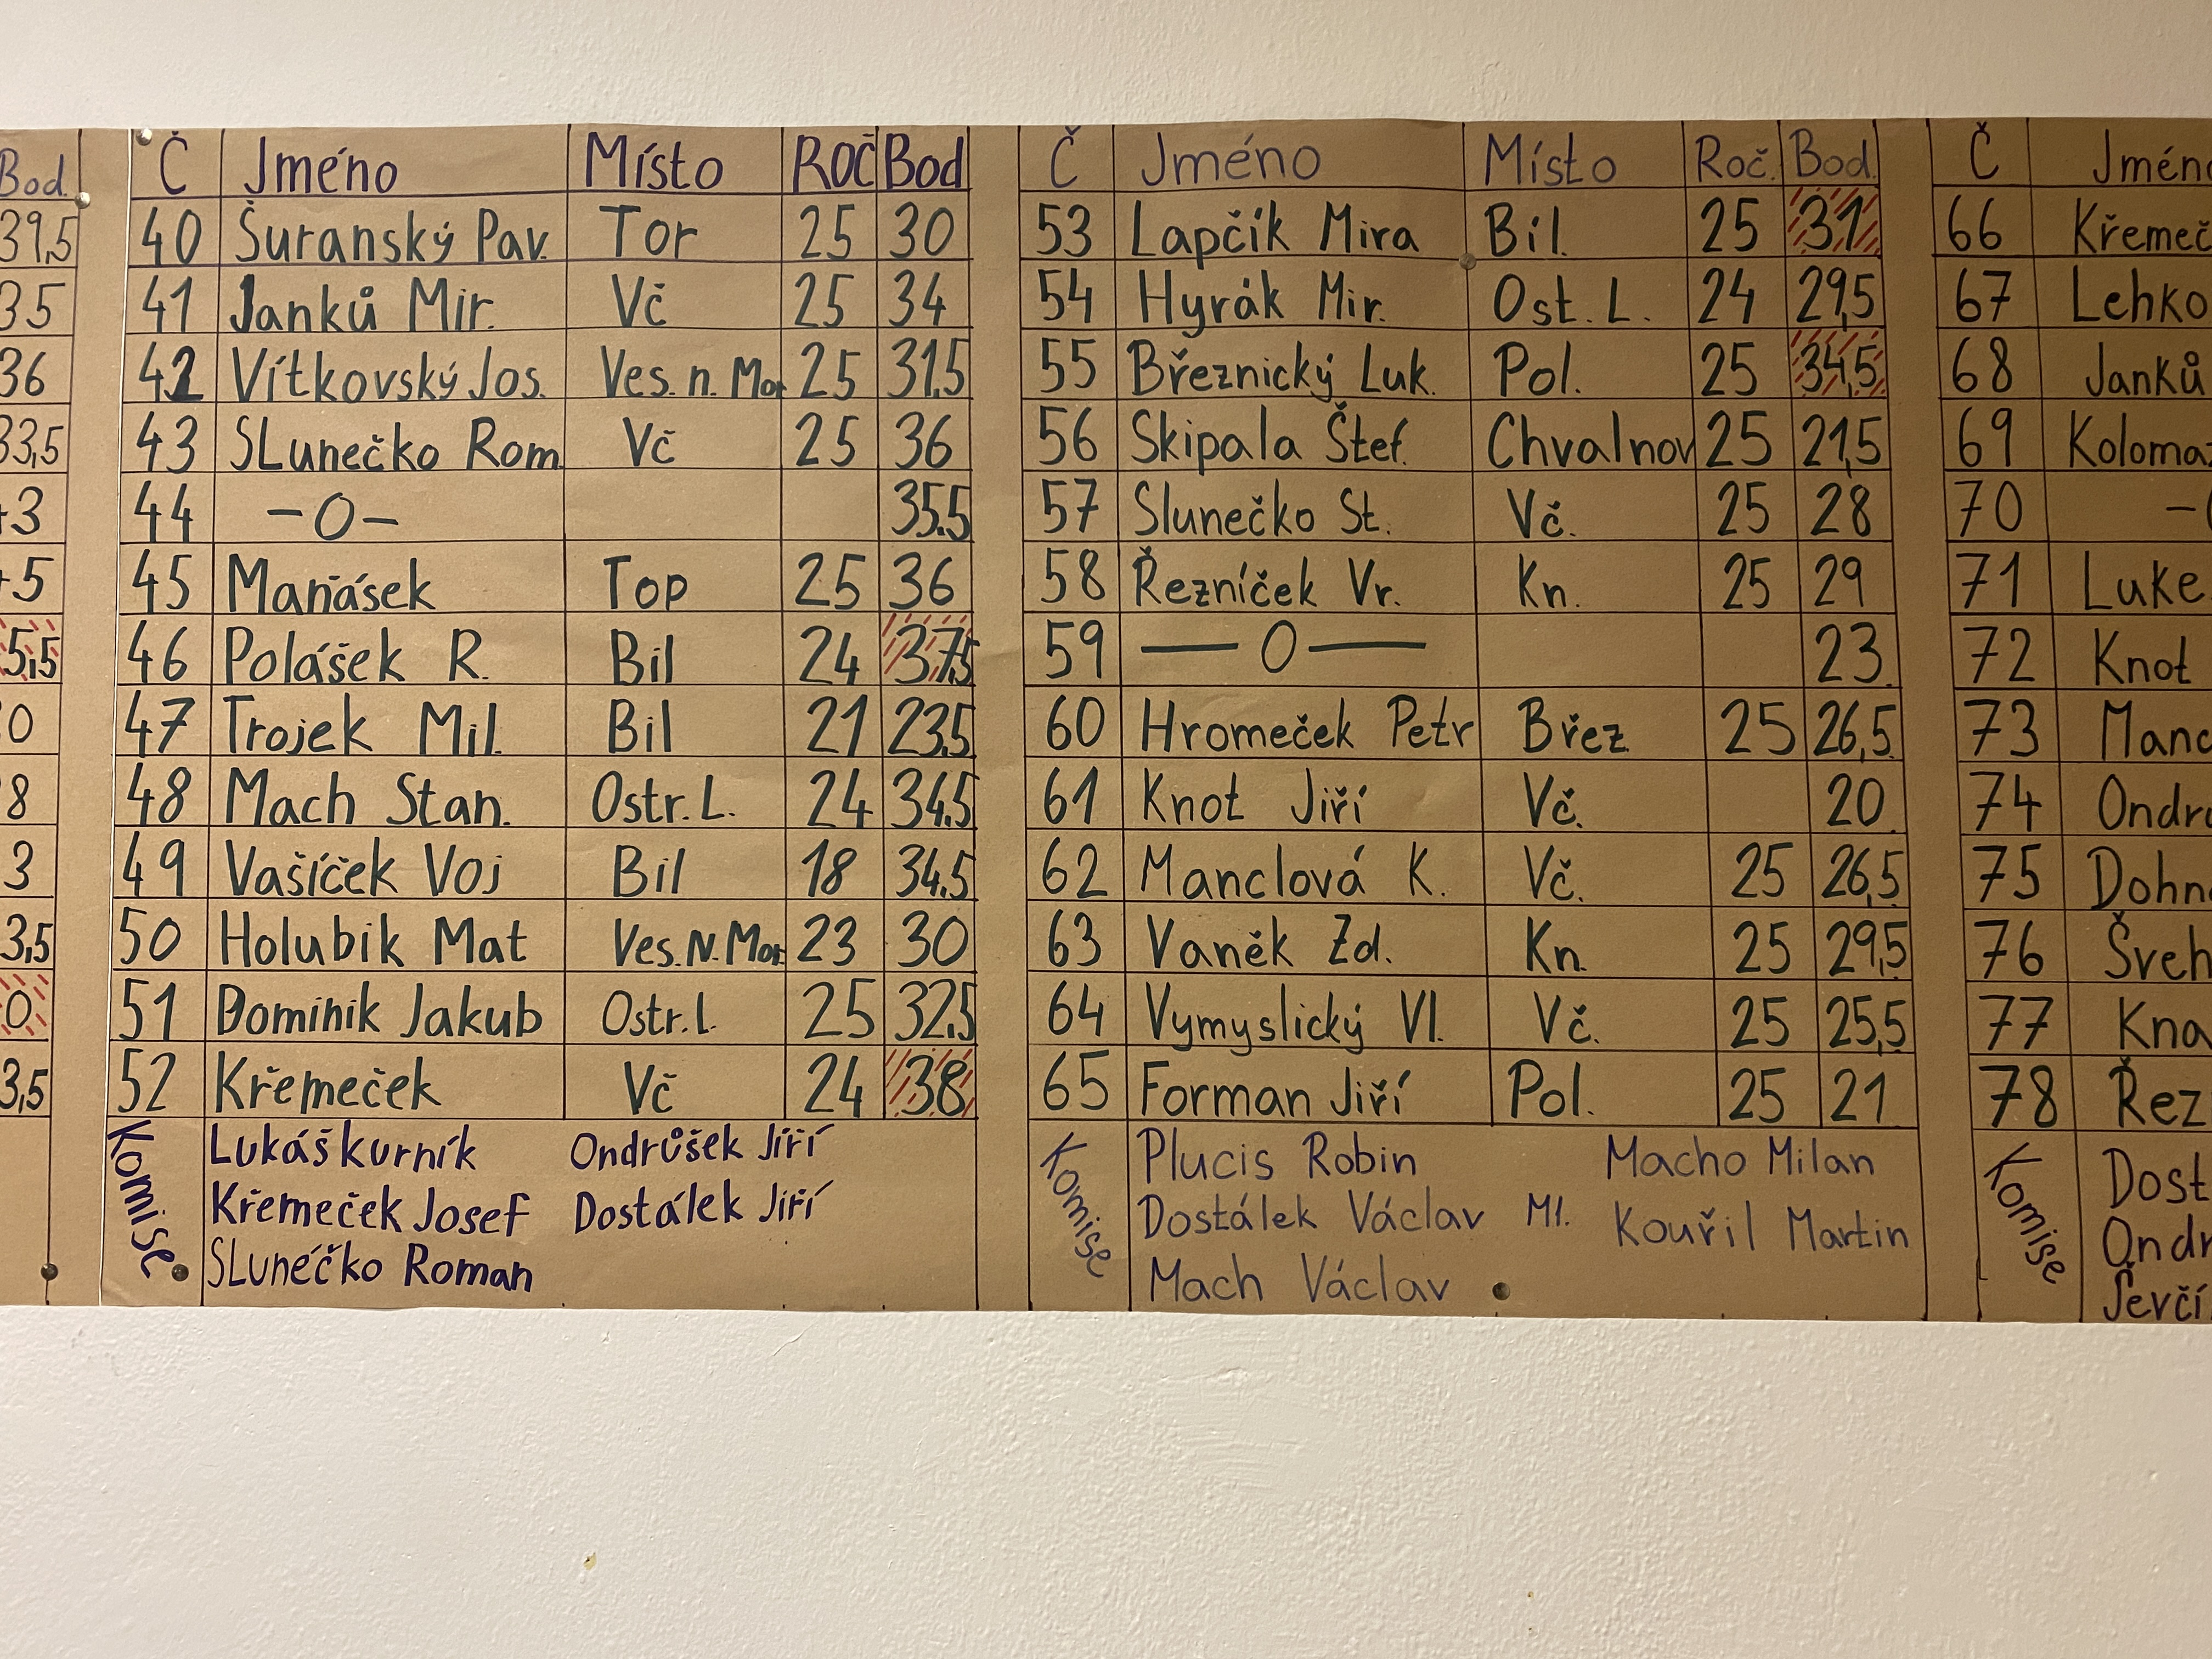 Bod.
39,5
35
36
33,5
3
5
5,5
0
8
3
3,5
0
3,5
Č Jméno Místo Roč Bod
40 Šuranský Pav. Tor 25 30
41 Janků Mir. Vč 25 34
42 Vítkovský Jos. Ves. n. Mor 25 31,5
43 SLunečko Rom. Vč 25 36
44 -O- 35,5
45 Maňásek Top 25 36
46 Polášek R. Bil 24 37,5
47 Trojek Mil. Bil 21 23,5
48 Mach Stan. Ostr. L. 24 34,5
49 Vašíček Voj Bil 18 34,5
50 Holubík Mat Ves. N. Mor. 23 30
51 Dominik Jakub Ostr. L. 25 32,5
52 Křemeček Vč 24 38
Komise
Lukáš kurník Ondrůšek Jiří
Křemeček Josef Dostálek Jiří
SLunéčko Roman
Č Jméno Místo Roč. Bod.
53 Lapčík Mira Bíl. 25 31
54 Hyrák Mir. Ost. L. 24 29,5
55 Březnický Luk. Pol. 25 34,5
56 Skipala Štef. Chvalnov 25 21,5
57 Slunečko St. Vč. 25 28
58 Řezníček Vr. Kn. 25 29
59 — O — 23
60 Hromeček Petr Břez 25 26,5
61 Knot Jiří Vč. 20
62 Manclová K. Vč. 25 26,5
63 Vaněk Zd. Kn. 25 29,5
64 Vymyslický Vl. Vč. 25 25,5
65 Forman Jiří Pol. 25 21
Komise
Plucis Robin Macho Milan
Dostálek Václav Ml. Kouřil Martin
Mach Václav
Č Jméno
66 Křemeč
67 Lehko
68 Janků
69 Koloma
70 -
71 Luke
72 Knot
73 Manc
74 Ondr
75 Dohn
76 Šveh
77 Kna
78 Řez
Komise
Dost
Ondr
Ševčí